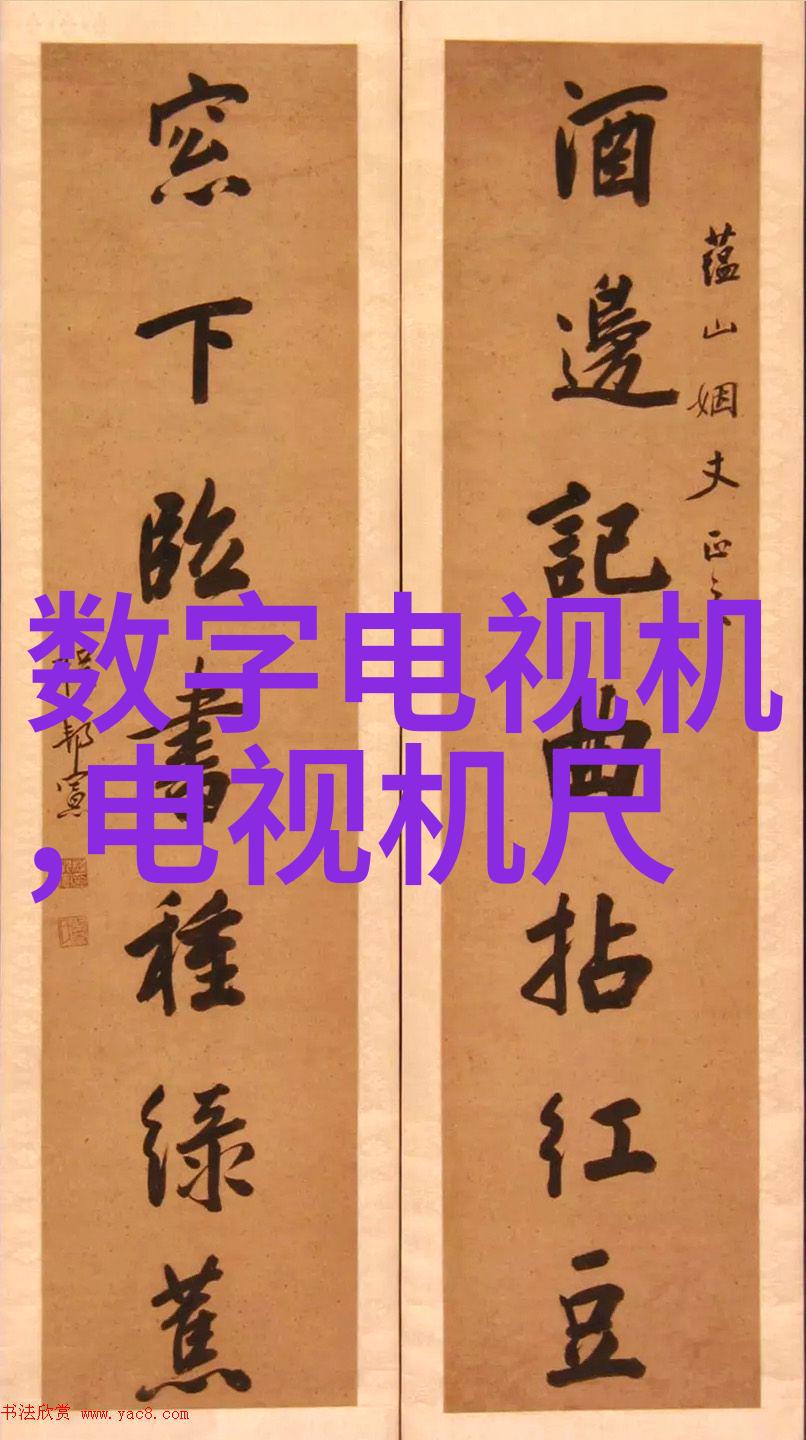 酒邊記曲拈紅豆
蘊山姻丈正之
窓下臨書種綠蕉
邦寘
数字电视机
,电视机尺
书法欣赏 www.yac8.com